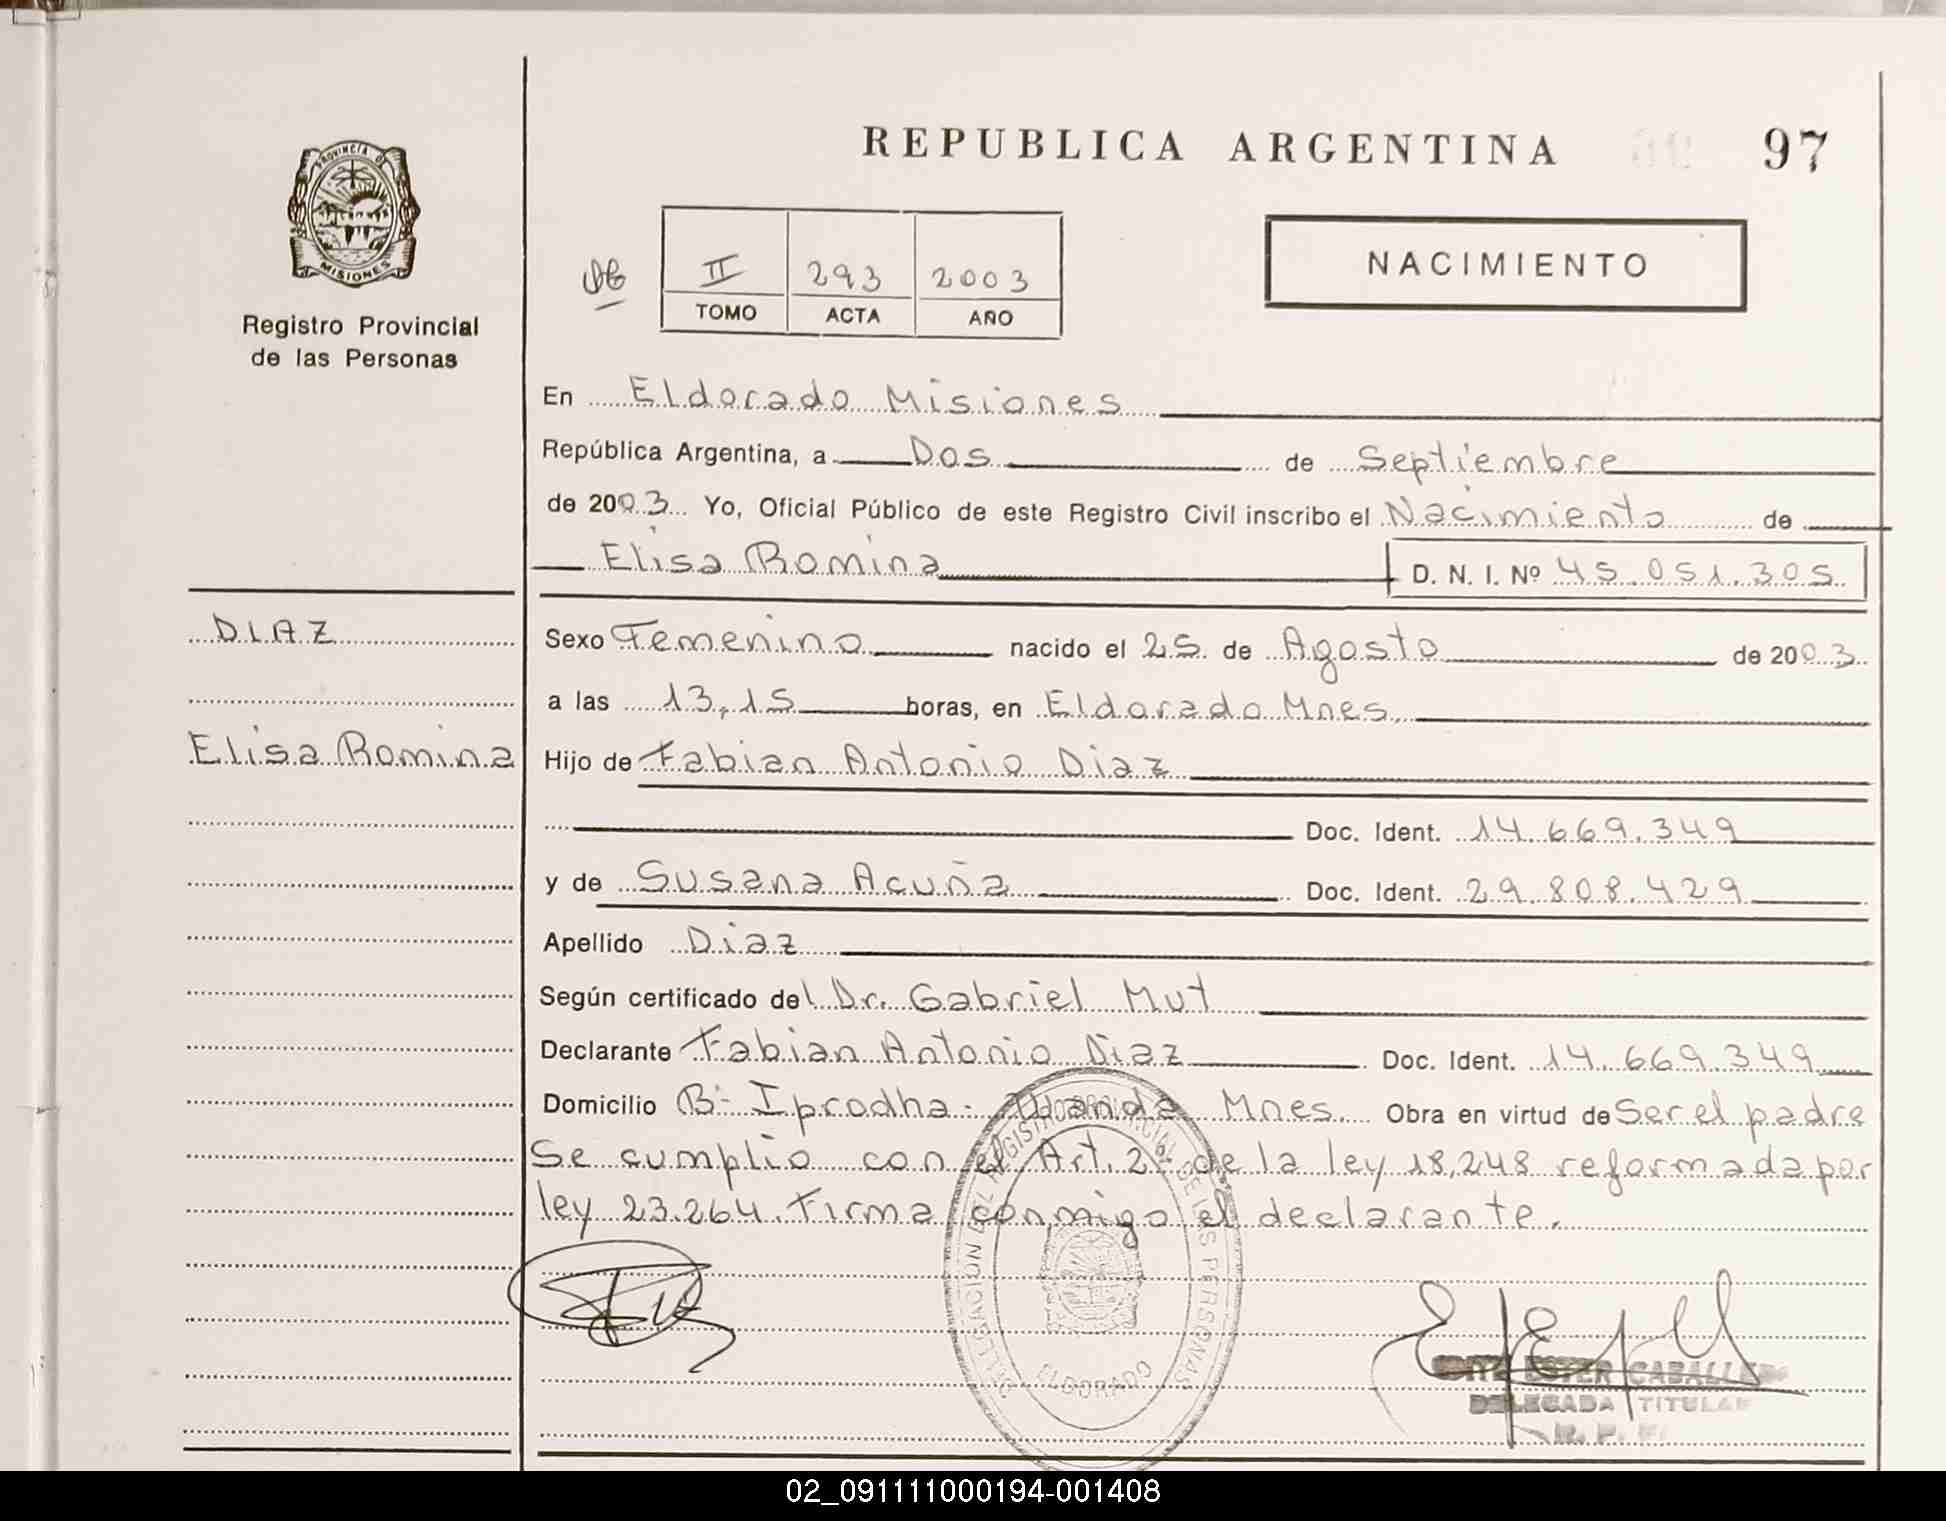 REPUBLICA ARGENTINA 97
PROVINCIA DE
MISIONES
Registro Provincial
de las Personas
II 293 2003
TOMO ACTA AÑO
NACIMIENTO
En Eldorado Misiones
República Argentina, a Dos de Septiembre
de 2003 Yo, Oficial Público de este Registro Civil inscribo el Nacimiento de
Elisa Romina D. N. I. Nº 45.051.305
DIAZ
Sexo Femenino nacido el 25 de Agosto de 2003
a las 13,15 horas, en Eldorado Mnes.
Elisa Romina
Hijo de Fabian Antonio Diaz
Doc. Ident. 14.669.349
y de Susana Acuña Doc. Ident. 29.808.429
Apellido Diaz
Según certificado del Dr. Gabriel Mut
Declarante Fabian Antonio Diaz Doc. Ident. 14.669.349
Domicilio Bº Iprodha. Wanda Mnes. Obra en virtud de Ser el padre
Se cumplio con el Art. 2º de la ley 18,248 reformada por
ley 23.264. Firma conmigo el declarante.
DELEGACION DEL REGISTRO PROVINCIAL DE LAS PERSONAS
ELDORADO
ESTER CABALLE
DELEGADA TITULAR
R. P. P.
02_091111000194-001408